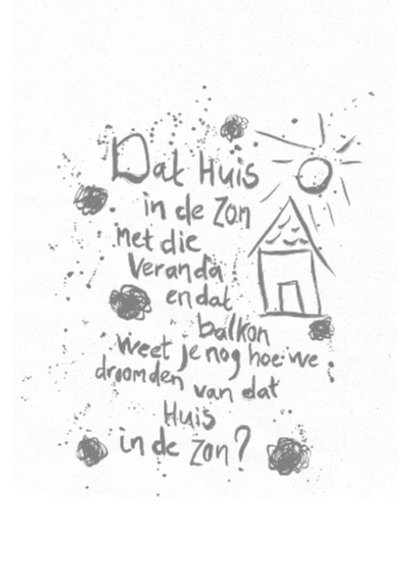 Dat Huis
in de Zon
met die
Veranda
en dat
balkon
weet je nog hoe we
droomden van dat
Huis
in de Zon?